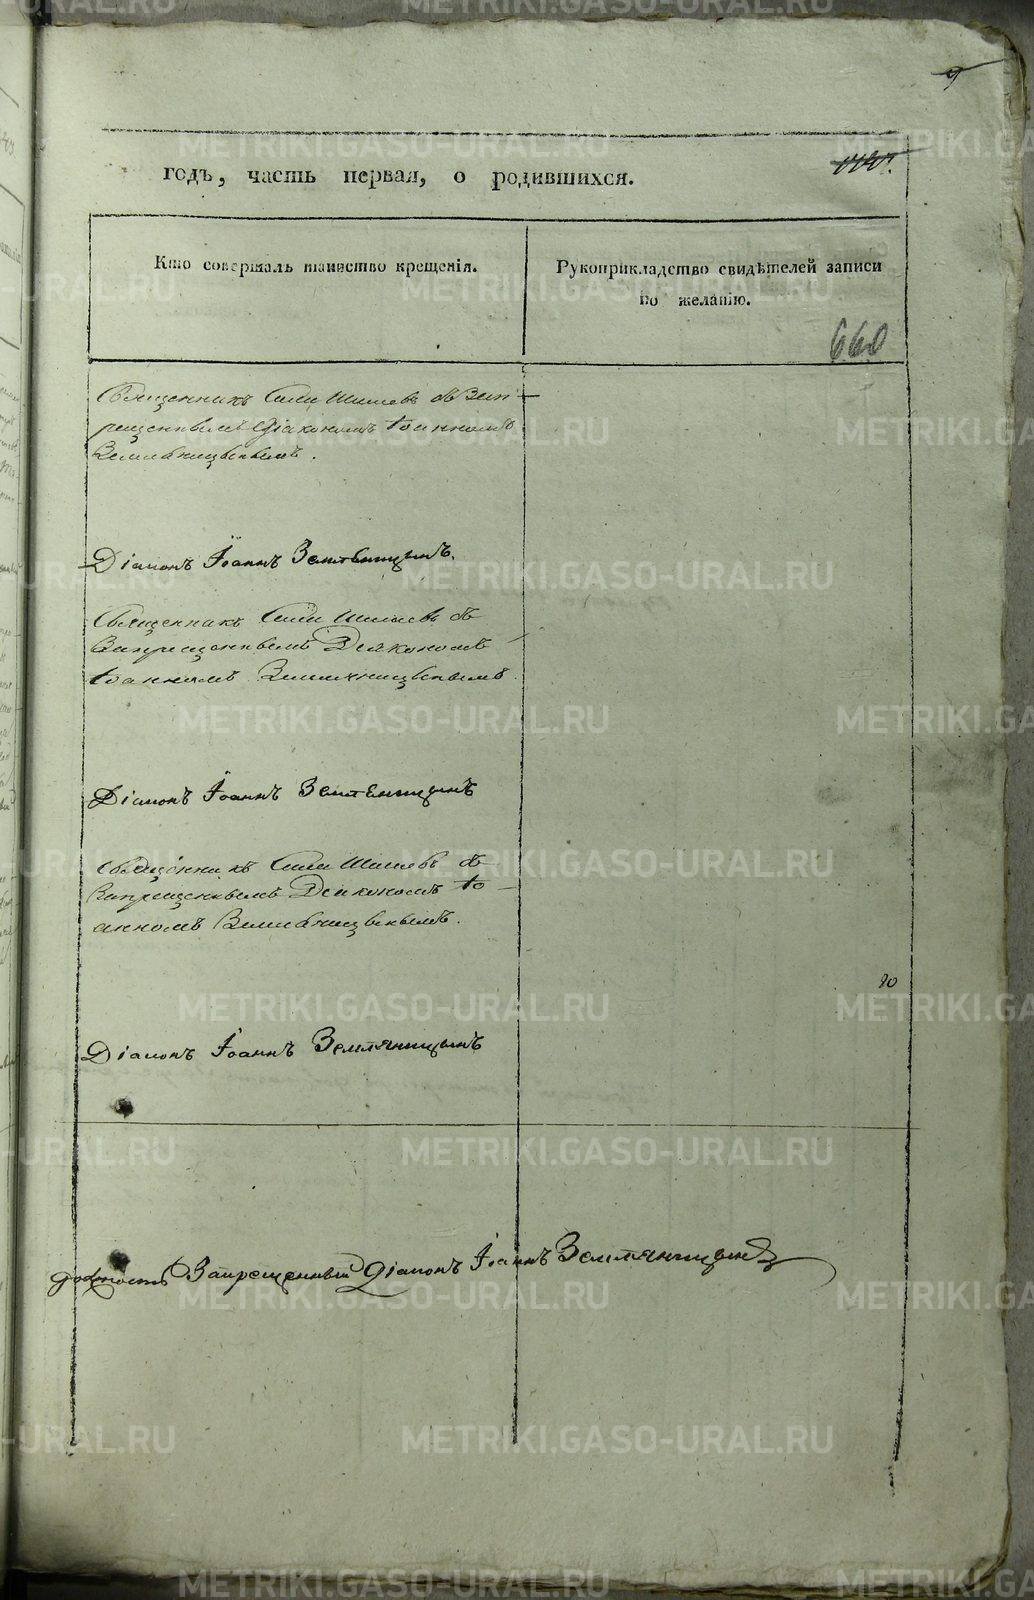 9
годъ, часть первая, о родившихся.
Кто совершалъ таинство крещенія.
Рукоприкладство свидѣтелей записи
по желанію.
660
Священникъ Сила Шишевъ съ Зап-
рещеннымъ Діакономъ Іоанномъ
Земляницынымъ.
Діаконъ Іоаннъ Земляницынъ.
Священникъ Сила Шишевъ съ
Запрещеннымъ Діякономъ
Іоанномъ Земляницынымъ
Діаконъ Іоаннъ Земляницынъ
Священникъ Сила Шишевъ съ
Запрещеннымъ Діякономъ Іо-
анномъ Земляницынымъ.
Діаконъ Іоаннъ Земляницынъ
Запрещенный Діаконъ Іоаннъ Земляницынъ
METRIKI.GASO-URAL.RU